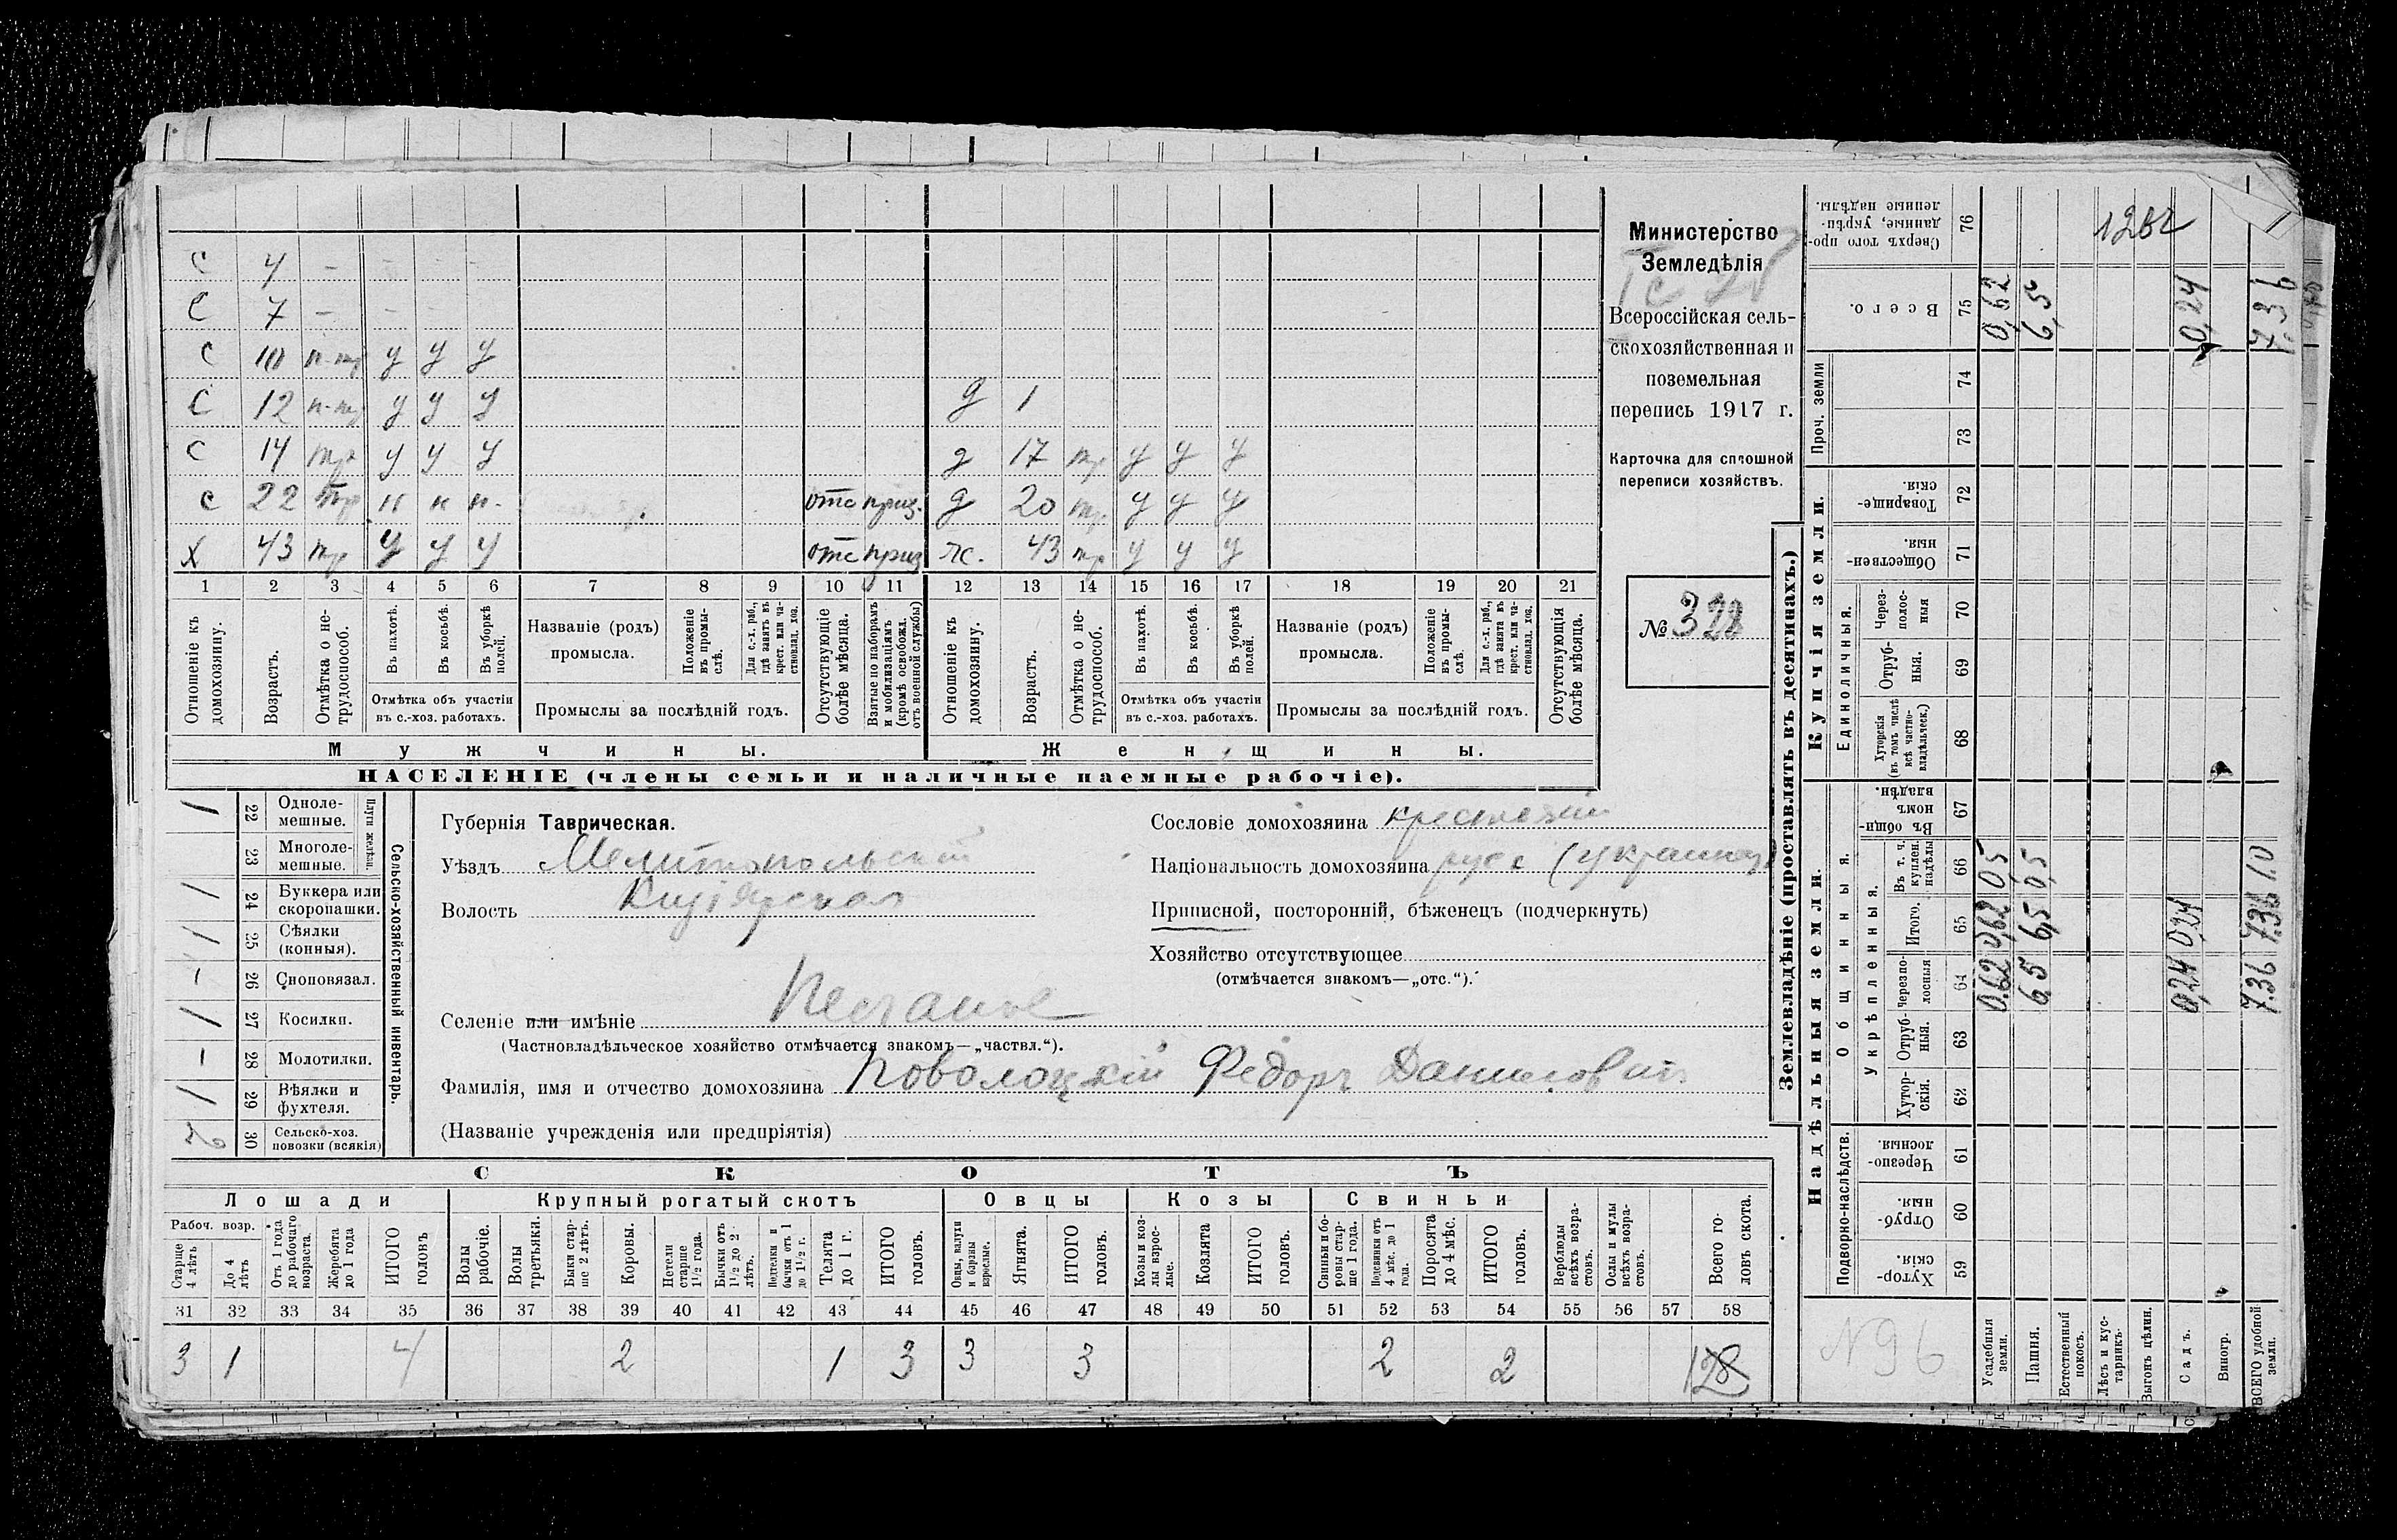 С 4 – – – –
С 7 – – –
С 10 п-тр у у у
С 12 п-тр у у у д 1
С 14 тр у у у д 17 тр у у у
с 22 тр н н н. отс призв. д 20 тр. у у у
х 43 тр у у у отс призв ж. 43 тр у у у
1 2 3 4 5 6 7 8 9 10 11 12 13 14 15 16 17 18 19 20 21
Отношеніе къ домохозяину.
Возрастъ.
Отмѣтка о нетрудоспособ.
Въ пахотѣ.
Въ косьбѣ.
Въ уборкѣ полей.
Отмѣтка объ участіи
въ с.-хоз. работахъ.
Названіе (родъ)
промысла.
Положеніе въ промыслѣ.
Для с.-х. раб., гдѣ занятъ въ крест. или частновлад. хоз.
Промыслы за послѣдній годъ.
Отсутствующіе болѣе мѣсяца.
Взятые по наборамъ и мобилизаціямъ (кромѣ освобожд. отъ военной службы)
Отношеніе къ домохозяину.
Возрастъ.
Отмѣтка о нетрудоспособ.
Въ пахотѣ.
Въ косьбѣ.
Въ уборкѣ полей.
Отмѣтка объ участіи
въ с.-хоз. работахъ.
Названіе (родъ)
промысла.
Положеніе въ промыслѣ.
Для с.-х. раб., гдѣ занята въ крест. или частновлад. хоз.
Промыслы за послѣдній годъ.
Отсутствующія болѣе мѣсяца.
Мужчины. Женщины.
НАСЕЛЕНІЕ (члены семьи и наличные наемные рабочіе).
Министерство
Земледѣлія
Всероссійская сель-
скохозяйственная и
поземельная
перепись 1917 г.
Карточка для сплошной
переписи хозяйствъ.
№ 328
Сельско-хозяйственный инвентарь.
Плуги желѣзн.
1 22 Одноле-
мешные.
23 Многоле-
мешные.
1 24 Буккера или
скоропашки.
1 25 Сѣялки
(конныя).
– 26 Сноповязал.
1 27 Косилки.
– 28 Молотилки.
1 29 Вѣялки и
фухтеля.
2 30 Сельско-хоз.
повозки (всякія)
Губернія Таврическая.
Уѣздъ Мелитопольскій
Волость Кизіярская
Селеніе или имѣніе Песчаное
(Частновладѣльческое хозяйство отмѣчается знакомъ—„частвл.“).
Фамилія, имя и отчество домохозяина Поволоцкій Федоръ Данилович
(Названіе учрежденія или предпріятія)
Сословіе домохозяина крестьянин
Національность домохозяина русс (украинец)
Приписной, посторонній, бѣженецъ (подчеркнуть)
Хозяйство отсутствующее
(отмѣчается знакомъ—„отс.“).
СКОТЪ
Лошади Крупный рогатый скотъ Овцы Козы Свиньи
Рабоч. возр.
Старше 4 лѣтъ
До 4 лѣтъ
Отъ 1 года до рабочаго возраста.
Жеребята до 1 года
ИТОГО головъ
Волы рабочіе.
Волы третьяки.
Быки старше 2 лѣтъ.
Коровы.
Нетели старше 1½ года.
Бычки отъ 1½ до 2 лѣтъ.
Подтелки и бычки отъ 1 до 1½ г.
Телята до 1 г.
ИТОГО головъ.
Овцы, валухи и бараны взрослые.
Ягнята.
ИТОГО головъ.
Козы и козлы взрослые.
Козлята
ИТОГО головъ.
Свиньи и боровы старше 1 года.
Подсвинки отъ 4 мѣс. до 1 года.
Поросята до 4 мѣс.
ИТОГО головъ.
Верблюды всѣхъ возрастовъ.
Ослы и мулы всѣхъ возрастовъ.
Всего головъ скота.
31 32 33 34 35 36 37 38 39 40 41 42 43 44 45 46 47 48 49 50 51 52 53 54 55 56 57 58
3 1 4 2 1 3 3 3 2 2 12
Землевладѣніе (проставлять въ десятинахъ.)
Надѣльныя земли. Купчія земли. Проч. земли
Подворно-наслѣдств.
Общинныя.
Укрѣпленныя.
Единоличныя.
Сверхъ того проданные, укрѣпленные надѣлы. 76
Всего. 75
74
73
Товарищескія. 72
Общественныя. 71
Черезполосныя 70
Отрубныя. 69
Хуторскія (въ томъ числѣ всѣ частновладѣльческ.) 68
Въ общинномъ владѣн. 67
Въ т. ч. куплен. надѣлы 66
Итого. 65
Черезполосныя 64
Отрубныя. 63
Хуторскія. 62
Черезполосныя. 61
Отрубныя. 60
Хуторскія. 59
Усадебныя земли. 0,62 0,62 0,5 0,62
Пашня. 6,5 6,5 0,5 6,5
Естественный покосъ.
Лѣсъ и кустарникъ.
Выгонъ цѣлин.
Садъ. 0,24 0,24 0,24
Виногр.
ВСЕГО удобной земли. 7.36 7.36 1.0 7.36
N 96